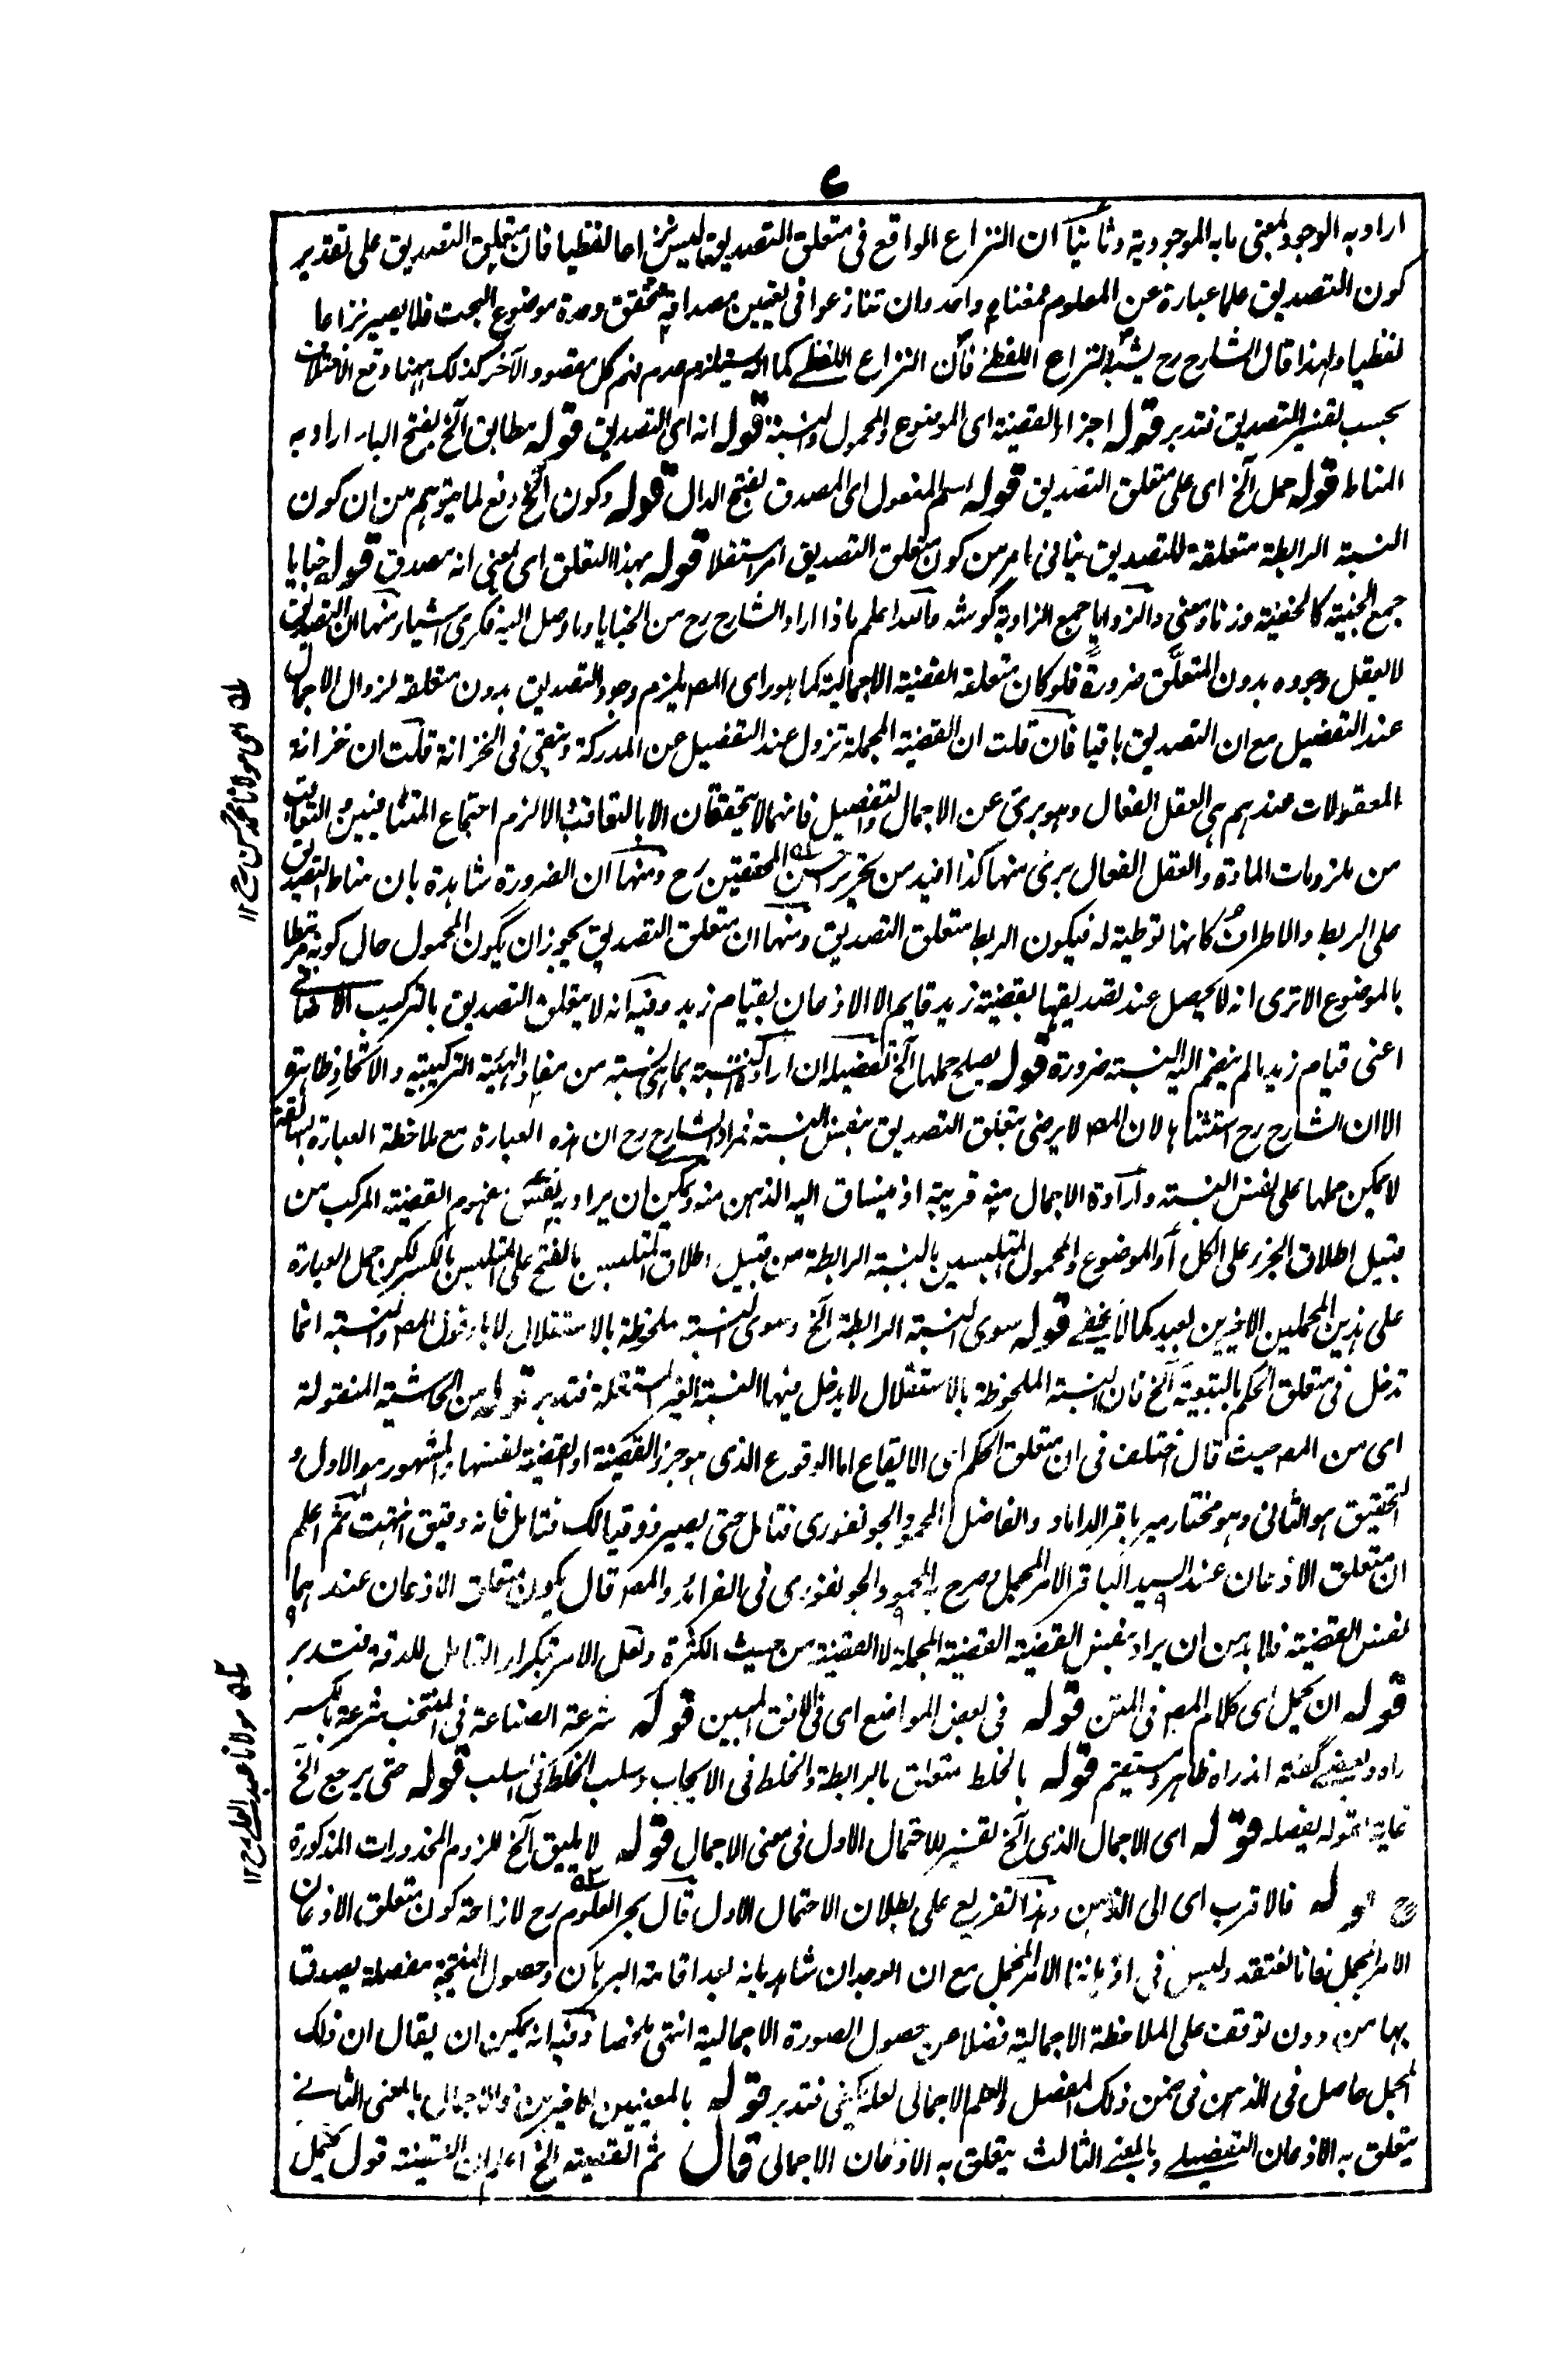 ٧
اراد به الوجود بمعنى ما به الموجودية وثانيا ان النزاع الواقع فى متعلق التصديق ليس نزاعا لفظيا فان متعلق التصديق على تقدير
كون التصديق علما عبارة عن المعلوم فمعناه واحد وان تنازعوا فى تعيين مصداقه فتحقق وحدة موضوع البحث فلا يصير نزاعا
لفظيا ولهذا قال الشارح رح يشبه النزاع اللفظى فان النزاع اللفظى كما انه يستلزم عدم فهم كل مقصود الآخر كذلك ههنا وقع الاختلاف
بحسب تفسير التصديق فتدبر قوله اجزاء القضية اى الموضوع والمحمول والنسبة قوله انه اى التصديق قوله مطابق آلخ بفتح الباء اراد به
المناط قوله حمل آلخ اى على متعلق التصديق قوله اسم المفعول اى المصدق بفتح الدال قوله وكون آلخ دفع لما يتوهم من ان كون
النسبة الرابطة متعلقة للتصديق ينافى ما مر من كون متعلق التصديق امرا مستقلا قوله بهذا التعلق اى بمعنى انه مصدق قوله خبايا
جمع الخبية كالخفية وزنا ومعنى والزوايا جمع الزاوية گوشه والله اعلم ماذا اراد الشارح رح من الخبايا وما وصل اليه فكرى اشياء منها ان التصديق
لا يعقل وجوده بدون المتعلق ضرورة فلو كان متعلقه القضية الاجمالية كما هو راى المصـ يلزم وجود التصديق بدون متعلقه لزوال الاجمال
عند التفصيل مع ان التصديق باقيا فان قلت ان القضية المجملة تزول عند التفصيل عن المدركة وتبقى فى الخزانة قلت ان خزانة
المعقولات عندهم هى العقل الفعال وهو برى عن الاجمال والتفصيل فانهما لا يتحققان الا بالتعاقب والا لزم اجتماع المتنافيين والتعاقب
من ملزومات المادة والعقل الفعال برى منها كذا افيد من تحرير احسن المحققين رح ومنها ان الضرورة شاهدة بان مناط التصديق
على الربط والاطراف كانها توطية له فيكون الربط متعلق التصديق ومنها ان متعلق التصديق يجوز ان يكون المحمول حال كونه مرتبطا
بالموضوع الا ترى انه لا يحصل عند تصديقها بقضية زيد قايم الا الاذعان بقيام زيد وفيه انه لا يتعلق التصديق بالتركيب الاضافى
اعنى قيام زيد ما لم ينضم اليه النسبة ضرورة قوله يصلح حملها آلخ تفصيله ان اراد النسبة بما هى نسبة من مفاد الهيئة التركيبية والاتحاد فظاهر
الا ان الشارح رح استثناها لان المصـ لا يرضى بتعلق التصديق بنفس النسبة فمراد الشارح رح ان هذه العبارة مع ملاحظة العبارة السابقة
لا يمكن حملها على نفس النسبة وارادة الاجمال منه قريبة اذ ينساق اليه الذهن منه ويمكن ان يراد به نفس مفهوم القضية المركب من
قبيل اطلاق الجزء على الكل أو الموضوع والمحمول المتلبسين بالنسبة الرابطة من قبيل اطلاق المتلبس بالفتح على المتلبس بالكسر لكن حمل العبارة
على هذين المحملين الاخيرين بعيد كما لا يخفى قوله سوى النسبة الرابطة آلخ دعوى النسبة ملحوظة بالاستقلال لا يابى قول المصـ والنسبة انما
تدخل فى متعلق الحكم بالتبعية آلخ فان النسبة الملحوظة بالاستقلال لا يدخل فيها النسبة الغير المستقلة فتدبر قوله من الحاشية المنقولة
اى من المصـ حيث قال اختلف فى ان متعلق الحكم اى الايقاع اما الوقوع الذى هو جزء القضية او القضية نفسها والمشهور هو الاول و
التحقيق هو الثانى وهو مختار مير باقر الداماد والفاضل المحمود الجونفورى فتامل حتى يصير ذوقيا لك فتامل فانه دقيق انتهت ثم اعلم
ان متعلق الاذعان عند السيد الباقر الامر المجمل وصرح به المحمود الجونفورى فى الفرائد والمصـ قال يكون متعلق الاذعان عندهما
نفس القضية فلا بد من ان يراد بنفس القضية القضية المجملة لا القضية من حيث الكثرة ولعل الامر بتكرار التامل للدقة فتدبر
قوله ان يحمل اى كلام المصـ فى المتن قوله فى بعض المواضع اى فى الافق المبين قوله شرعة الصناعة فى المنتخب شرعة بالكسر
راه وبعضے گفته اند راه ظاهر ومستقيم قوله بالخلط متعلق بالرابطة والخلط فى الايجاب وسلب الخلط فى السلب قوله حتى يرجع آلخ
غاية لقوله يفصله قوله اى الاجمال الذى آلخ تفسير للاحتمال الاول فى معنى الاجمال قوله لا يليق آلخ للزوم المحذورات المذكورة
ح قوله فالاقرب اى الى الذهن وهذا التفريع على بطلان الاحتمال الاول قال بحر العلوم رح لازاحة كون متعلق الاذعان
الامر المجمل فانا نعتقد وليس فى اذهاننا الامر المجمل مع ان الوجدان شاهد بانه بعد اقامة البرهان وحصول النتيجة مفصلة يصدق
بها من دون توقف على الملاحظة الاجمالية فضلا عن حصول الصورة الاجمالية انتهى ملخصا وفيه انه يمكن ان يقال ان ذلك
المجمل حاصل فى الذهن فى ضمن ذلك المفصل والعلم الاجمالى لعله يكفى فتدبر قوله بالمعنيين الاخيرين فالاجمال بالمعنى الثانى
يتعلق به الاذعان التفصيلى وبالمعنى الثالث يتعلق به الاذعان الاجمالى قال ثم القضية الخ اعلم ان القضية قول يحتمل
له اى مولانا محمد حسن رح ١٢
له مولانا عبد العلى رح ١٢